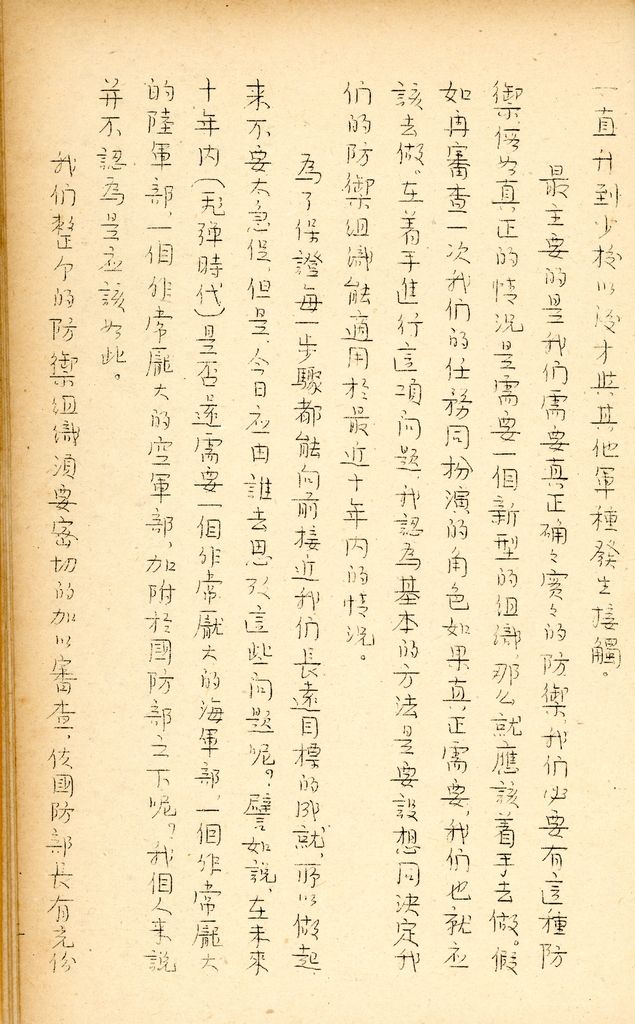 一直升到少校以後才與其他軍種發生接觸。
最主要的是我們需要真正确々實々的防禦，我們必要有這種防
禦，倘若真正的情況是需要一個新型的組織那么就應該着手去做。假
如再審查一次我們的任務同扮演的角色如果真正需要，我們也就应
該去做。在着手進行這項问題，我認為基本的方法是要設想同決定我
们的防禦組織能適用於最近十年内的情況。
為了保證每一步驟都能向前接近我们長遠目標的成就，所以做起
来不要太急促，但是，今日应由誰去思攷這些问題呢？譬如說，在未來
十年内（飛彈時代）是否還需要一個非常龎大的海軍部，一個非常龎大
的陸軍部，一個非常龎大的空軍部，加附於國防部之下呢？我個人来説
并不認為是应該如此。
我们整个的防禦組織須要密切的加以審查，使國防部長有充份